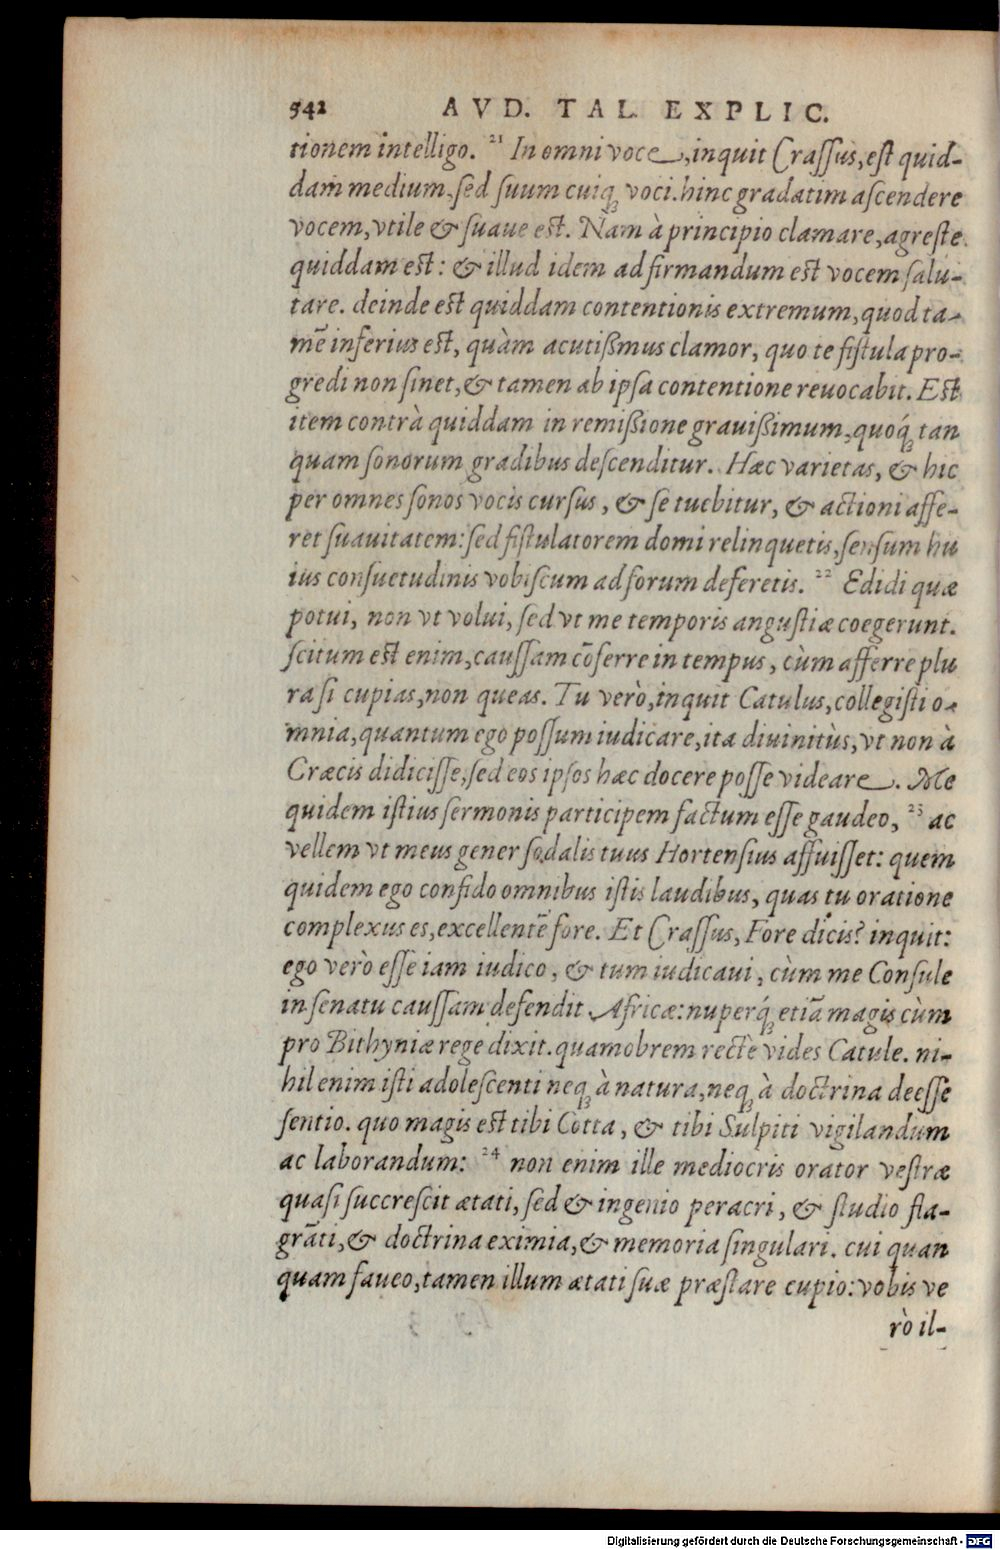 542 AVD. TAL. EXPLIC.
tionem intelligo. 21 In omni voce, inquit Crassus, est quid-
dam medium, sed suum cuiq; voci. hinc gradatim ascendere
vocem, vtile & suaue est. Nam à principio clamare, agreste
quiddam est: & illud idem ad firmandum est vocem salu-
tare. deinde est quiddam contentionis extremum, quod ta-
mẽ inferius est, quàm acutißimus clamor, quo te fistula pro-
gredi non sinet, & tamen ab ipsa contentione reuocabit. Est
item contrà quiddam in remißione grauißimum, quoq́; tan
quam sonorum gradibus descenditur. Hæc varietas, & hic
per omnes sonos vocis cursus, & se tuebitur, & actioni affe-
ret suauitatem: sed fistulatorem domi relinquetis, sensum hu
ius consuetudinis vobiscum ad forum deferetis. 22 Edidi quæ
potui, non vt volui, sed vt me temporis angustiæ coegerunt.
scitum est enim, caussam cõferre in tempus, cùm afferre plu
ra si cupias, non queas. Tu verò, inquit Catulus, collegisti o-
mnia, quantum ego possum iudicare, ita diuinitùs, vt non à
Græcis didicisse, sed eos ipsos hæc docere posse videare. Me
quidem istius sermonis participem factum esse gaudeo, 23 ac
vellem vt meus gener sodalis tuus Hortensius affuisset: quem
quidem ego confido omnibus istis laudibus, quas tu oratione
complexus es, excellentẽ fore. Et Crassus, Fore dicis? inquit:
ego verò esse iam iudico, & tum iudicaui, cùm me Consule
in senatu caussam defendit Africæ: nuperq́; etiã magis cùm
pro Bithyniæ rege dixit. quamobrem rectè vides Catule. ni-
hil enim isti adolescenti neq; à natura, neq; à doctrina deesse
sentio. quo magis est tibi Cotta, & tibi Sulpiti vigilandum
ac laborandum: 24 non enim ille mediocris orator vestræ
quasi succrescit ætati, sed & ingenio peracri, & studio fla-
grãti, & doctrina eximia, & memoria singulari. cui quan
quam faueo, tamen illum ætati suæ præstare cupio: vobis ve
rò il-
Digitalisierung gefördert durch die Deutsche Forschungsgemeinschaft - DFG